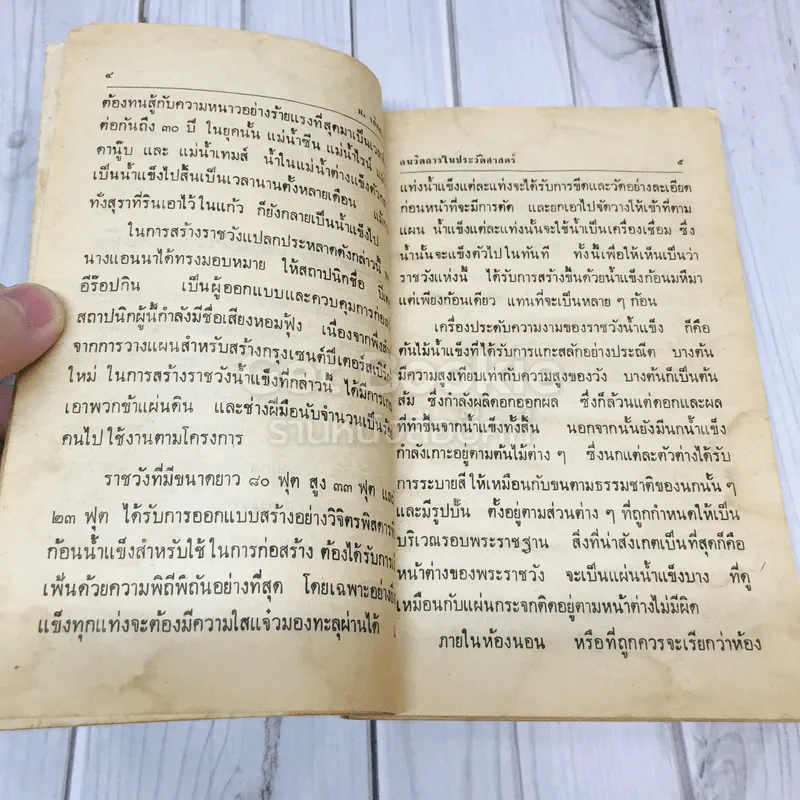 ๔
ต้องทนสู้กับความหนาวอย่างร้ายแรงที่สุดมาเป็นเวลา
ต่อกันถึง ๓๐ ปี ในยุคนั้น แม่น้ำซีน แม่น้ำไรน์
ดานู๊บ และ แม่น้ำเทมส์ น้ำในแม่น้ำต่างแข็งตัว
เป็นน้ำแข็งไปสิ้นเป็นเวลานานตั้งหลายเดือน
ทั้งสุราที่รินเอาไว้ในแก้ว ก็ยังกลายเป็นน้ำแข็งไป
ในการสร้างราชวังแปลกประหลาดดังกล่าวนี้
นางแอนนาได้ทรงมอบหมาย ให้สถาปนิกชื่อ
อีร๊อปกิน เป็นผู้ออกแบบและควบคุมการก่อ
สถาปนิกผู้นี้กำลังมีชื่อเสียงหอมฟุ้ง เนื่องจาก
จากการวางแผนสำหรับสร้างกรุงเซนต์ปีเตอร์สเบิร์ก
ใหม่ ในการสร้างราชวังน้ำแข็งที่กล่าวนี้ ได้มีการ
เอาพวกข้าแผ่นดิน และช่างฝีมือนับจำนวนเป็น
คนไปใช้งานตามโครงการ
ราชวังที่มีขนาดยาว ๘๐ ฟุต สูง ๓๓ ฟุต และ
๒๓ ฟุต ได้รับการออกแบบสร้างอย่างวิจิตรพิสดาร
ก้อนน้ำแข็งสำหรับใช้ในการก่อสร้าง ต้องได้รับการ
เฟ้นด้วยความพิถีพิถันอย่างที่สุด โดยเฉพาะอย่าง
แข็งทุกแท่งจะต้องมีความใสแจ๋วมองทะลุผ่านได้
คนวิตถารในประวัติศาสตร์ ๕
แท่งน้ำแข็งแต่ละแท่งจะได้รับการขีดและวัดอย่างละเอียด
ก่อนหน้าที่จะมีการตัด และยกเอาไปจัดวางให้เข้าที่ตาม
แผน น้ำแข็งแต่ละแท่งนั้นจะใช้น้ำเป็นเครื่องเชื่อม ซึ่ง
น้ำนั้นจะแข็งตัวไปในทันที ทั้งนี้เพื่อให้เห็นเป็นว่า
ราชวังแห่งนี้ ได้รับการสร้างขึ้นด้วยน้ำแข็งก้อนมหึมา
แต่เพียงก้อนเดียว แทนที่จะเป็นหลาย ๆ ก้อน
เครื่องประดับความงามของราชวังน้ำแข็ง ก็คือ
ต้นไม้น้ำแข็งที่ได้รับการแกะสลักอย่างประณีต บางต้น
มีความสูงเทียบเท่ากับความสูงของวัง บางต้นก็เป็นต้น
ส้ม ซึ่งกำลังผลิดอกออกผล ซึ่งก็ล้วนแต่ดอกและผล
ที่ทำขึ้นจากน้ำแข็งทั้งสิ้น นอกจากนั้นยังมีนกน้ำแข็ง
กำลังเกาะอยู่ตามต้นไม้ต่าง ๆ ซึ่งนกแต่ละตัวต่างได้รับ
การระบายสีให้เหมือนกับขนตามธรรมชาติของนกนั้น ๆ
และมีรูปปั้น ตั้งอยู่ตามส่วนต่าง ๆ ที่ถูกกำหนดให้เป็น
บริเวณรอบพระราชฐาน สิ่งที่น่าสังเกตเป็นที่สุดก็คือ
หน้าต่างของพระราชวัง จะเป็นแผ่นน้ำแข็งบาง ที่ดู
เหมือนกับแผ่นกระจกติดอยู่ตามหน้าต่างไม่มีผิด
ภายในห้องนอน หรือที่ถูกควรจะเรียกว่าห้อง